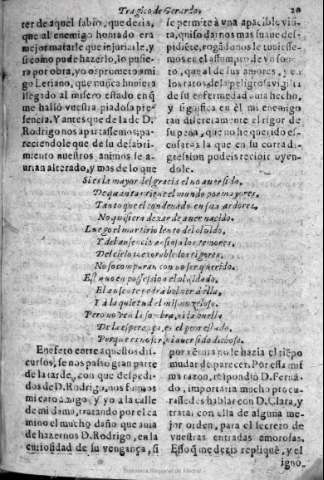 Tragico de Gerardo, 20
ter de aquel sabio, que dezia,
que al enemigo honrado era
mejor matarle que injuriarle, y
si como pude hazerlo, lo pusiera
por obra, yo os prometo amigo
Leriano, que nunca huuiera
llegado al misero estado en q̃
me hallò vuestra piadosa presencia.
Y antes que de la de D.
Rodrigo nos apartassemos, pareciendole
que de su desabrimiento
nuestros animos se auian
alterado, y mas de lo que
se permite à vna apacible visita,
quiso darnos mas suaue despidiẽte,
rogãdonos le
en el assumpto de vn soneto,
que al de sus amores, y en
los ratos de la peligrosa vigilia
de su enfermedad auia hecho,
y significa en èl mi enemigo
tan diestramente el rigor de
su pena, que no he querido escusaros
la que en su corta digression
podeis recibir oyendole.
Si es la mayor desgracia el no auer sido,
De quantas tiene el mundo por mayores,
Tanto que el condenado en sus ardores,
No quisiera dexar de auer nacido.
Luego el martirio lento del oluido,
Y del ausencia los temores,
Del cielo los rigores,
No se comparan con no ser querido.
Estando en possession el oluidado,
El ausente podrà boluer à ella,
Y à la quietud el mismo zeloso.
Pero no
De la esperança, es el
Porque
En efeto entre aquestos discursos,
se nos passò gran parte
de la tarde, con que despedidos
de D. Rodrigo, nos fuimos
mi camarada, y yo à la calle
de mi dama, tratando por el camino
el mucho daño que auia
de hazernos D. Rodrigo, en la
curiosidad de su vengança, si
por ventura no le hazia el tiẽpo
mudar de parecer. Por essa misma
razon, respondiò D. Fernãdo,
importaria mucho procurassedes
hablar con D. Clara, y
tratar con ella de alguna mejor
orden, para el secreto de
vuestras entradas amorosas.
Esso q̃ me dezis repliquè, y el
igno-
Biblioteca Regional de Madrid